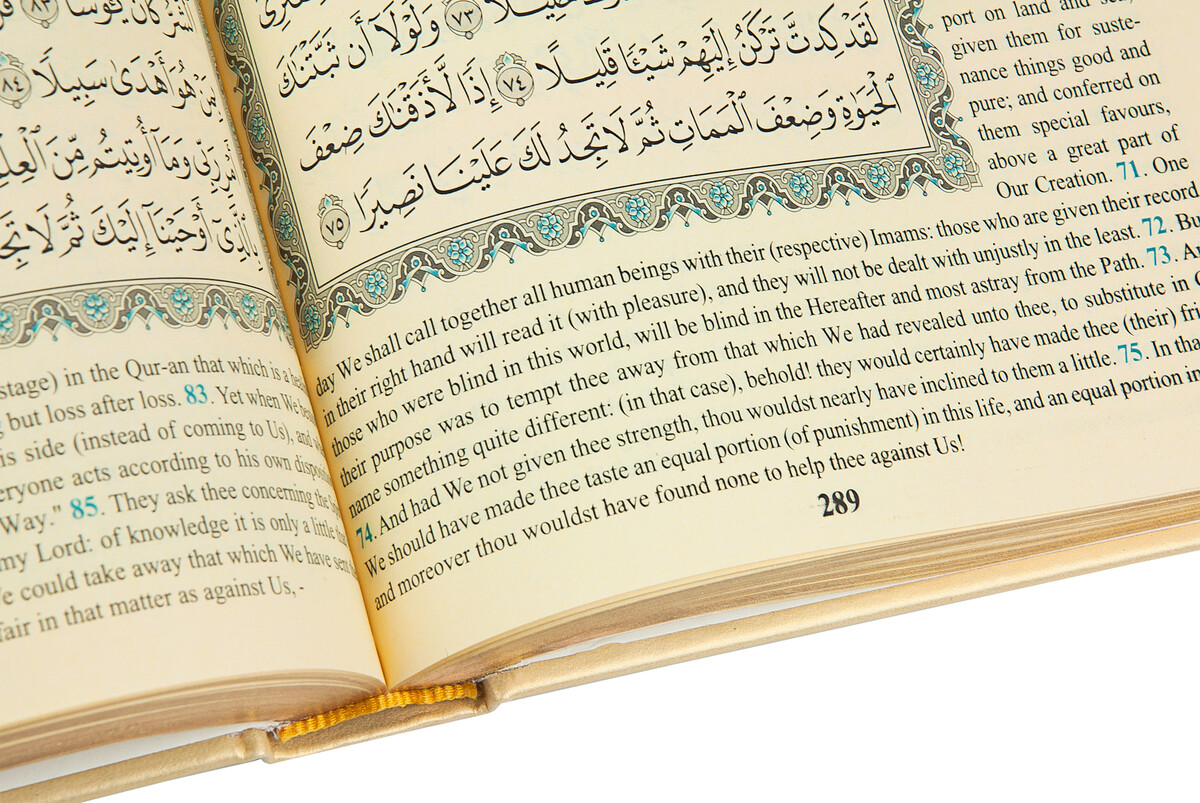 وَمَآ أُوتِيتُم مِّنَ
أَوْحَيْنَآ إِلَيْكَ ثُمَّ لَا
هُوَ أَهْدَىٰ سَبِيلًا ٨٤
stage) in the Qur-an that which is a
but loss after loss. 83. Yet when We
side (instead of coming to Us), and
acts according to his own
Way." 85. They ask thee concerning the
my Lord: of knowledge it is only a little
could take away that which We have sent
in that matter as against Us,-
٧٣ وَلَوْلَآ أَن ثَبَّتْنَٰكَ
لَقَدْ كِدتَّ تَرْكَنُ إِلَيْهِمْ شَيْـًٔا قَلِيلًا ٧٤ إِذًا لَّأَذَقْنَٰكَ ضِعْفَ
ٱلْحَيَوٰةِ وَضِعْفَ ٱلْمَمَاتِ ثُمَّ لَا تَجِدُ لَكَ عَلَيْنَا نَصِيرًا ٧٥
port on land and sea;
given them for suste-
nance things good and
pure; and conferred on
them special favours,
above a great part of
Our Creation. 71. One
day We shall call together all human beings with their (respective) Imams: those who are given their record
in their right hand will read it (with pleasure), and they will not be dealt with unjustly in the least. 72. But
those who were blind in this world, will be blind in the Hereafter and most astray from the Path. 73.
their purpose was to tempt thee away from that which We had revealed unto thee, to substitute in
name something quite different: (in that case), behold! they would certainly have made thee (their)
74. And had We not given thee strength, thou wouldst nearly have inclined to them a little. 75. In
We should have made thee taste an equal portion (of punishment) in this life, and an equal portion in
and moreover thou wouldst have found none to help thee against Us!
289